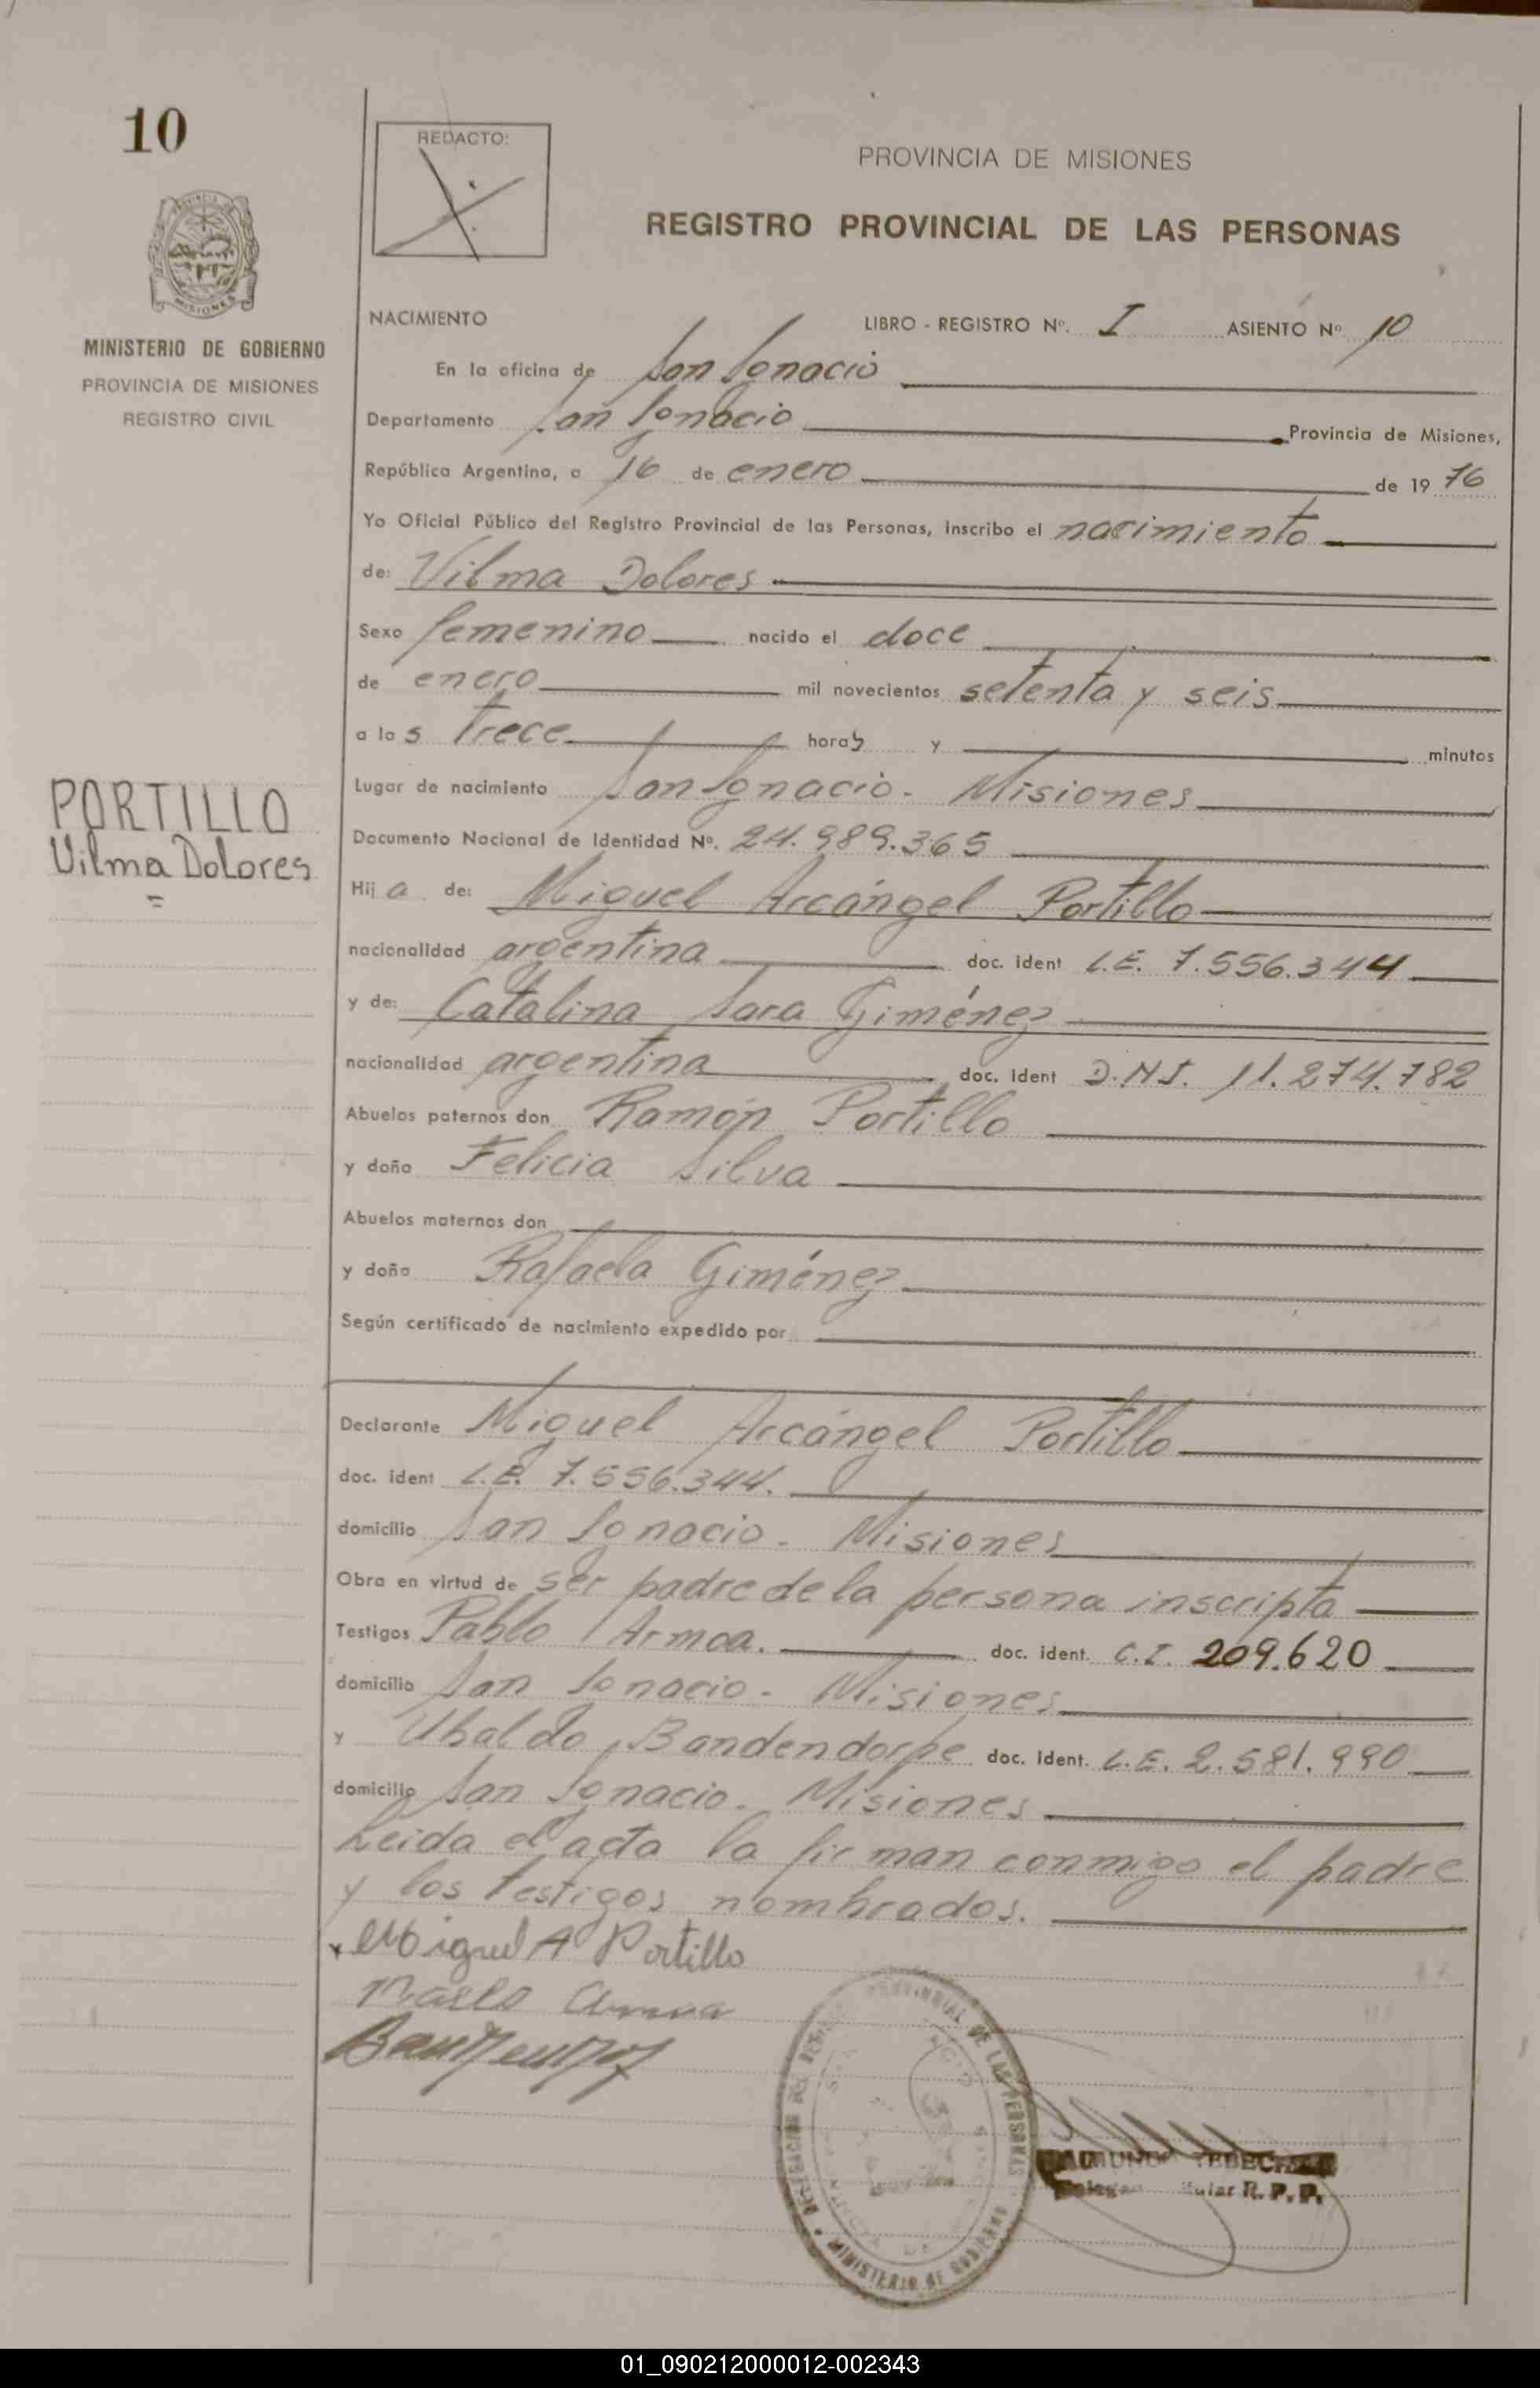 10
REDACTO:
PROVINCIA DE MISIONES
REGISTRO PROVINCIAL DE LAS PERSONAS
MISIONES
MINISTERIO DE GOBIERNO
PROVINCIA DE MISIONES
REGISTRO CIVIL
NACIMIENTO LIBRO - REGISTRO Nº. I ASIENTO Nº 10
En la oficina de San Ignacio
Departamento San Ignacio Provincia de Misiones,
República Argentina, a 16 de enero de 1976
Yo Oficial Público del Registro Provincial de las Personas, inscribo el nacimiento
de: Vilma Dolores
Sexo femenino nacido el doce
de enero mil novecientos setenta y seis
a las trece horas y minutos
Lugar de nacimiento San Ignacio - Misiones
PORTILLO
Vilma Dolores
Documento Nacional de Identidad Nº. 24.989.365
Hija de: Miguel Arcángel Portillo
nacionalidad argentina doc. ident L.E. 7.556.344
y de: Catalina Sara Giménez
nacionalidad argentina doc. ident D.N.I. 11.274.782
Abuelos paternos don Ramón Portillo
y doña Felicia Silva
Abuelos maternos don
y doña Rafaela Giménez
Según certificado de nacimiento expedido por
Declarante Miguel Arcángel Portillo
doc. ident L.E. 7.556.344.
domicilio San Ignacio - Misiones
Obra en virtud de ser padre de la persona inscripta
Testigos Pablo Armoa. doc. ident. C.I. 209.620
domicilio San Ignacio - Misiones
y Ubaldo Bandendorpe doc. ident. L.E. 2.581.990
domicilio San Ignacio - Misiones
Leida el acta la firman conmigo el padre
y los testigos nombrados.
Miguel A Portillo
Pablo Armoa
PROVINCIAL DE LAS PERSONAS
MINISTERIO DE GOBIERNO
R. P. P.
01_090212000012-002343